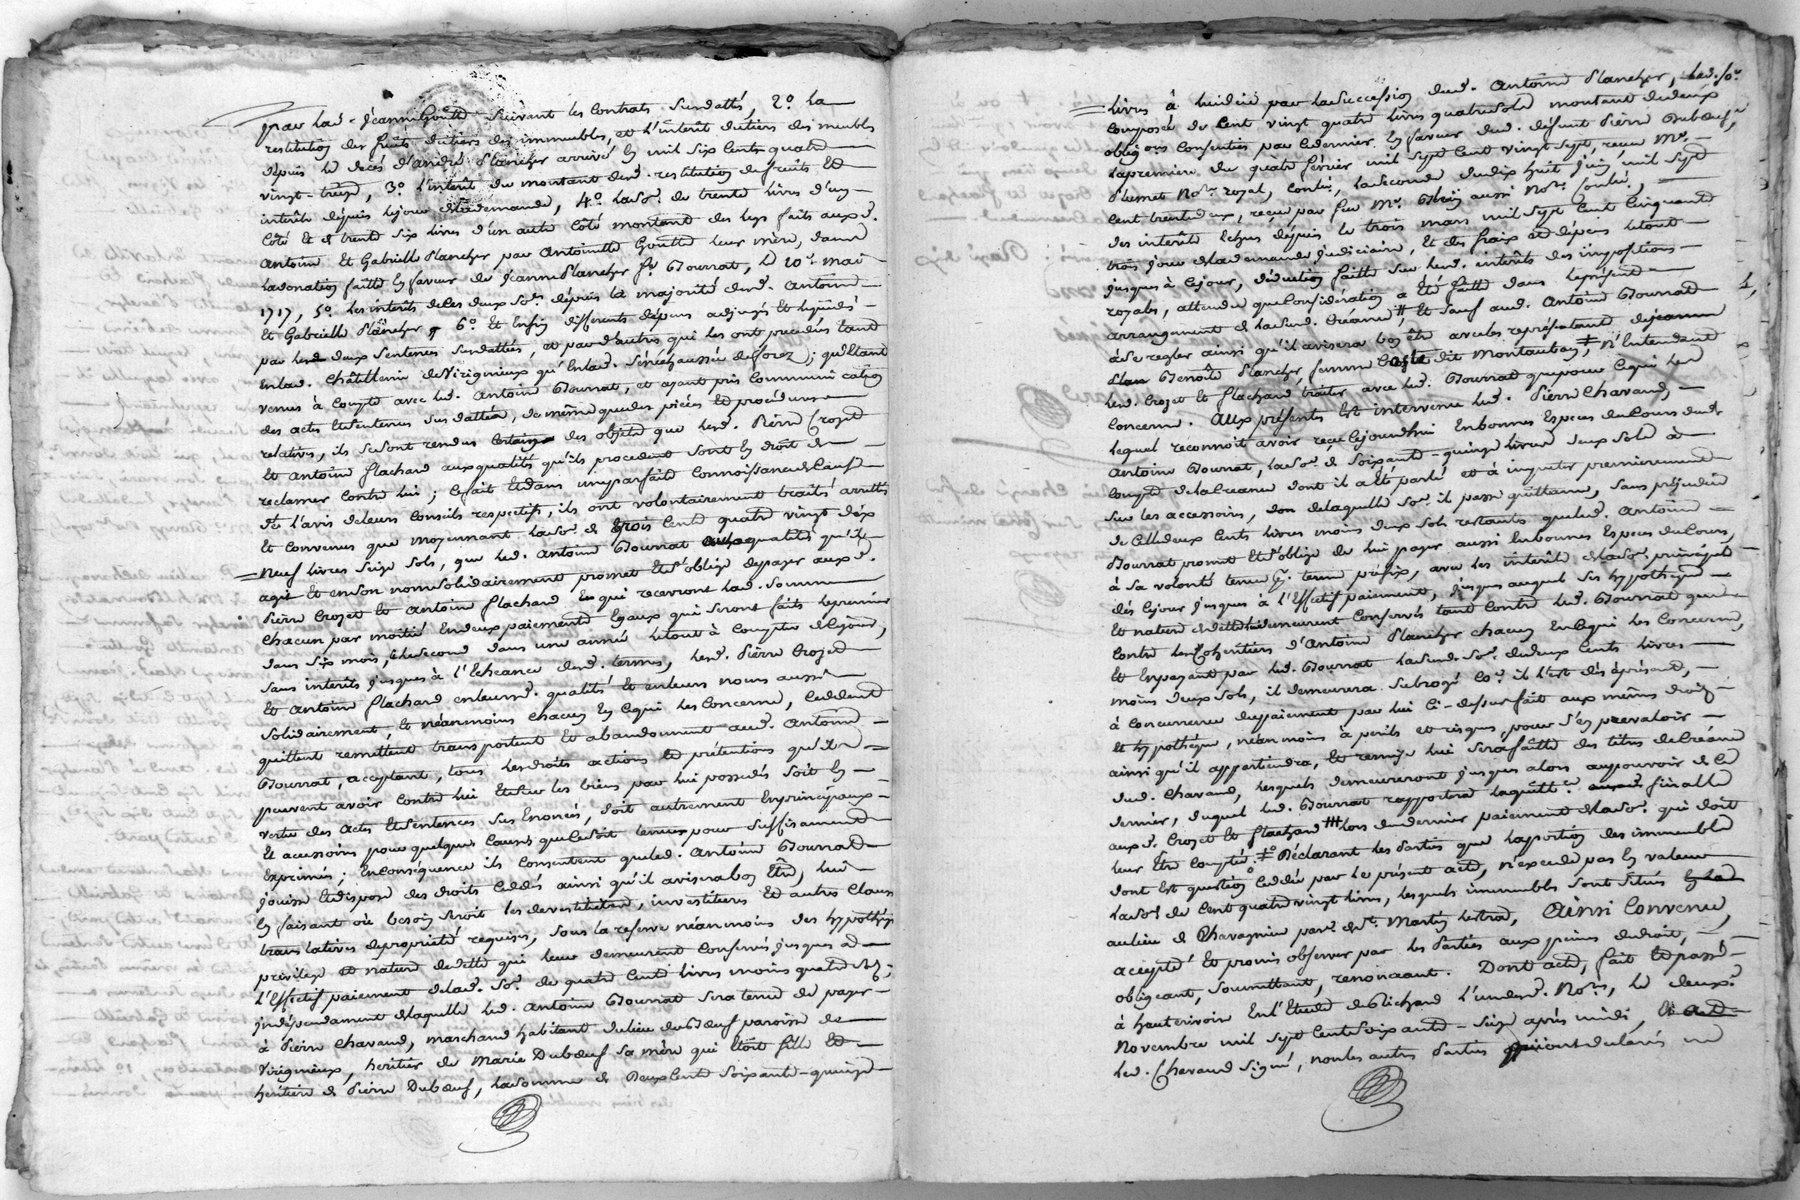 par lad. Jeanne Goutte suivant les contrats susdattés, 2.° la
restitution des fruits du tiers des immeubles, et l'interêt du tiers des meubles
depuis le decès d'André Plancher arrivé en mil six cents quatre
vingt-treize, 3.° l'interêt du montant de lad. restitution de fruits et
interêts depuis le jour de la demande, 4.° la so.e de trente livres d'un
côté et de trente six livres d'un autre côté montant des legs faits auxd.
Antoine et Gabrielle Plancher par Antoinette Goutte leur mère, dans
la donation faitte en faveur de Jeanne Plancher f.e Bournat, le 20.e mai
1717, 5.° les interêts de ces deux so.es depuis la majorité desd. Antoine
et Gabrielle Plancher, 6.° et enfin differents dépens adjugés et liquidés
par lesd. deux sentences susdattées, et par d'autres qui les ont precedées tant
en lad. châtellenie de Virignieux qu'en lad. sénéchaussée de forez; qu'étant
venus à compte avec led. Antoine Bournat, et ayant pris communication
des actes et sentences susdattées, de même que des pièces et procédures
relatives, ils se sont rendus certains des objets que lesd. Pierre Crozet
et Antoine flachard aux qualités qu'ils procedent sont en droit de
reclamer contre lui; ce fait et dans une parfaite connoissance de cause
de l'avis de leurs conseils respectifs, ils ont volontairement traité arrêté
et convenus que moyennant la so.e de trois cents quatre vingt dix
neuf livres seize sols, que led. Antoine Bournat aux qualités qu'il
agit et en son nom solidairement promet et s'oblige de payer auxd.
Pierre Crozet et Antoine flachard en qui recevront lad. somme
chacun par moitié en deux paiements egaux qui seront faits le premier
dans six mois, et le second dans une année le tout à compter de ce jour,
sans interêts jusques à l'echeance desd. termes, lesd. Pierre Crozet
et Antoine flachard en leursd. qualités et en leurs noms aussi
solidairement, et néanmoins chacun en ce qui les concerne, cedent
quittent remettent transportent et abandonnent aud. Antoine
Bournat, acceptant, tous les droits actions et prétentions qu'ils
peuvent avoir contre lui et sur les biens par lui possedés soit en
vertu des actes et sentences sus enoncés, soit autrement en principaux
et accessoires pour quelques causes que ce soit tenues pour suffisamment
exprimés; en conséquence ils consentent que led. Antoine Bournat
jouisse et dispose des droits cedés ainsi qu'il avisera bon être, lui
en faisant où besoin seroit les devestitures, investitures et autres clauses
translatives de propriété requises, sous la reserve néanmoins des hypothèques
privilege et nature de dette qui leur demeurent conservés jusques à
l'effectif paiement de lad. so.e de quatre cents livres moins quatre sols;
indépendament de laquelle led. Antoine Bournat sera tenu de payer
à Pierre Chavand, marchand habitant du lieu du Bœuf paroisse de
Virignieux, heritier de Marie Dubœuf sa mère qui etoit fille et
heritiere de Pierre Dubœuf, la somme de deux cents soixante-quinze
livres à lui due par la succession dud. Antoine Plancher, lad. so.e
composée de cent vingt quatre livres quatre sols montant de deux
oblig.ons consenties par ce dernier en faveur dud. défunt Pierre Dubœuf,
la premiere du quatre février mil sept cent vingt sept, reçue M.e
Pinet No.re royal, contrôlée, la seconde du dix huit juin mil sept
cent trente deux, reçue par feu M.e aussi No.re contrôlée,
des interêts echus depuis le trois mars mil sept cent cinquante
trois jour de la demande judiciaire, et des frais et dépens le tout
jusques à ce jour, déduction faitte sur lesd. interêts des impositions
royales, attendu que considération a été faitte dans le présent
arrangement de lad. créance, et sauf aud. Antoine Bournat
à se regler ainsi qu'il avisera bon être avec les représentants de Jeanne
Benoîte Plancher, femme Coste dit Montauban, n'entendant
lesd. Crozet et flachard traiter avec led. Bournat que pour ce qui les
concerne. Aux présentes est intervenu led. Pierre Chavand,
lequel reconnoit avoir reçu ce jourd'hui en bonnes especes du cours dud.
Antoine Bournat, la so.e de soixante-quinze livres deux sols à
compte de la créance dont il a été parlé et à imputer premierement
sur les accessoires, don de laquelle so.e il passe quittance, sans préjudice
de celle deux cents livres moins deux sols restante que led. Antoine
Bournat promet et s'oblige de lui payer aussi en bonnes especes du cours,
à sa volonté tenu p.r terme préfix, avec les interêts de la so.e principale
dès ce jour jusques à l'effectif paiement, jusques auquel ses hypothèques
et nature de dette lui demeurent conservés tant contre led. Bournat que
contre les cohéritiers d'Antoine Plancher chacun en ce qui les concerne,
et en payant par led. Bournat lad. so.e de deux cents livres
moins deux sols, il demeurera subrogé co.e il l'est dès à présent,
à concurrence du paiement par lui ci-dessus fait aux mêmes droits
et hypothèque, néanmoins à perils et risques, pour s'en prevaloir
ainsi qu'il appartiendra, et remise lui sera faitte des titres de créance
dud. Chavand, lesquels demeureront jusques alors au pouvoir de ce
dernier, duquel led. Bournat rapportera laquitt.ce finalle
auxd. Crozet et flachard lors du dernier paiement de la so.e qui doit
leur être compté. Déclarant les Parties que la portion des immeubles
dont est question cedée par le présent acte, n'excede pas en valeur
la so.e de cent quatre vingt livres, lesquels immeubles sont situés
au lieu de Chavagnieu par.se de St. Martin Lestra, Ainsi convenu,
accepté et promis observer par les Parties aux peines de droit,
obligeant, soumettant, renonceant. Dont acte, fait et passé
à hauterivoire en l'etude de Richard l'un desd. No.res, le deux.e
Novembre mil sept cent soixante-seize après midi,
led. Chavand signé, non les autres Parties qui ont declaré ne